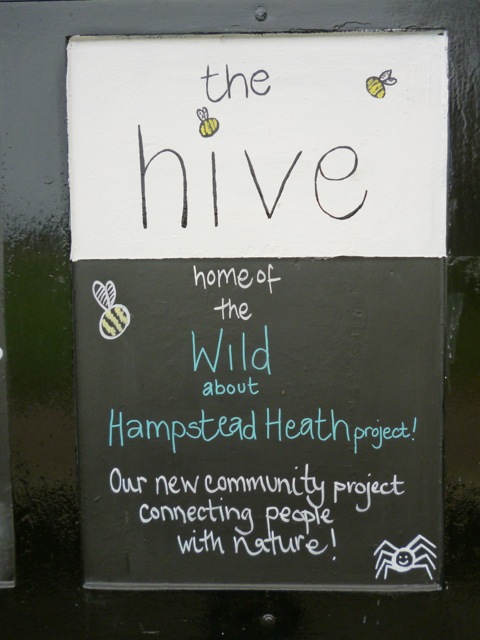 the
hive
home of
the
Wild
about
Hampstead Heath project!
Our new community project
connecting people
with nature!